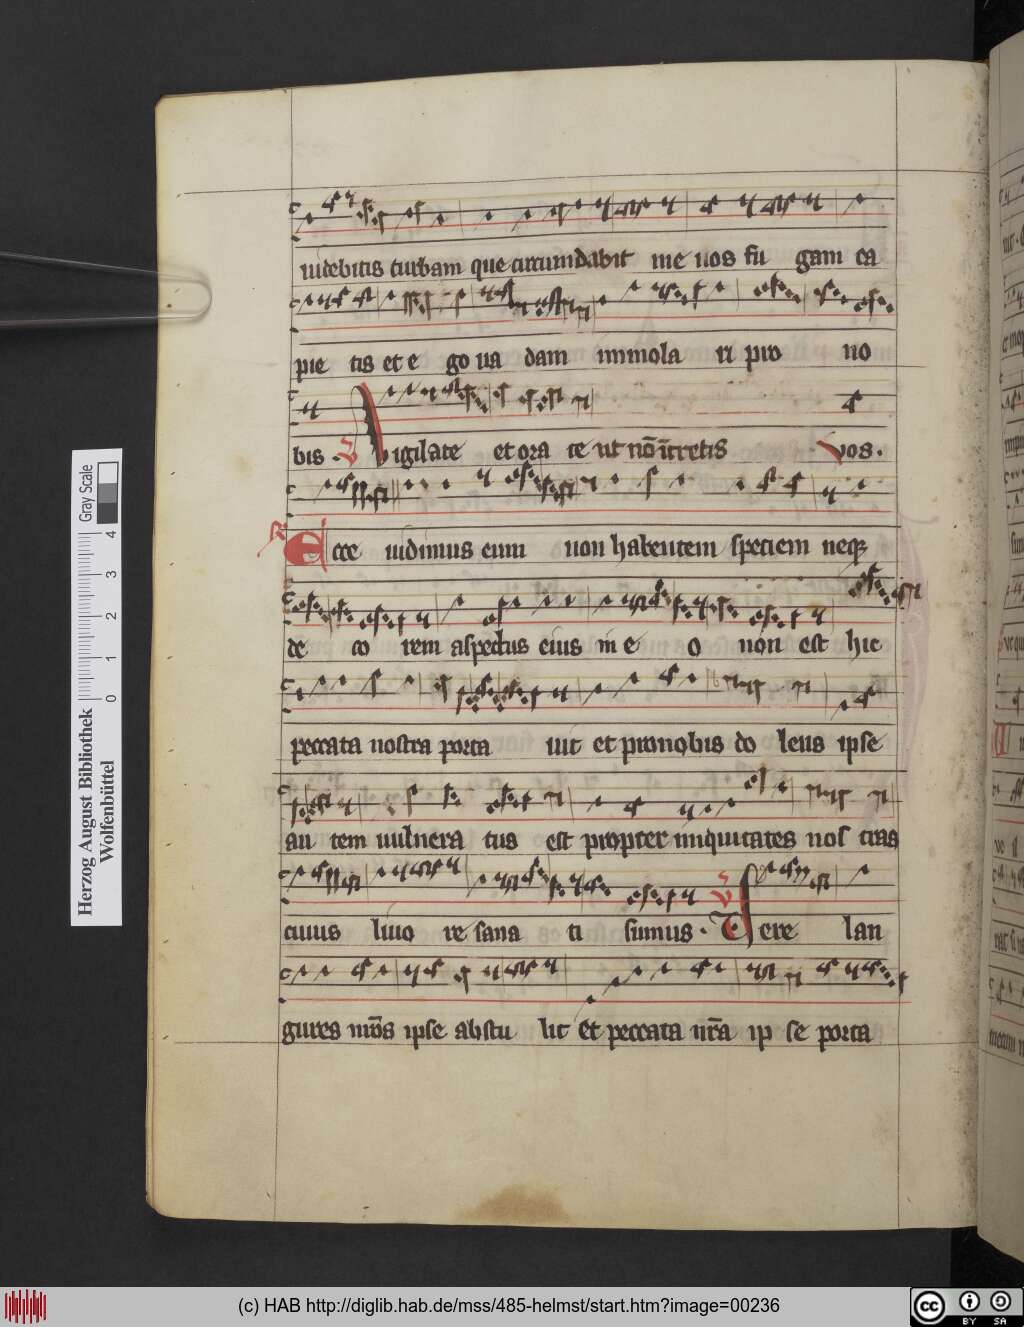 uidebitis turbam que circumdabit me uos fu gam ca
pie tis et e go ua dam immola ri pro no
bis . V Vigilate et ora te ut nō ītretis vos.
R Ecce uidimus eum non habentem speciem neqȝ
de co rem aspectus eius in e o non est hic
peccata nostra porta uit et pronobis do leus ipse
au tem uulnera tus est propter iniquitates nos tras
cuius liuo re sana ti sumus . V Vere lan
gures nr̄os ipse abstu lit et peccata nr̄a ip se porta
Herzog August Bibliothek
Wolfenbüttel
0 1 2 3 4
Gray Scale
(c) HAB http://diglib.hab.de/mss/485-helmst/start.htm?image=00236
cc BY SA